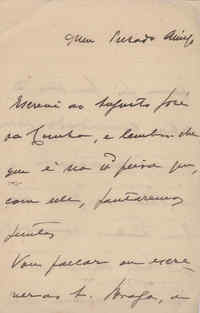 Meu Presado Amigo
Escrevi ao Augusto José
da Cunha, e lembrei-lhe
que é na 6ª feira que,
com elle, jantaremos
juntos
Vou fallar ou escre-
ver ao T. Braga, a